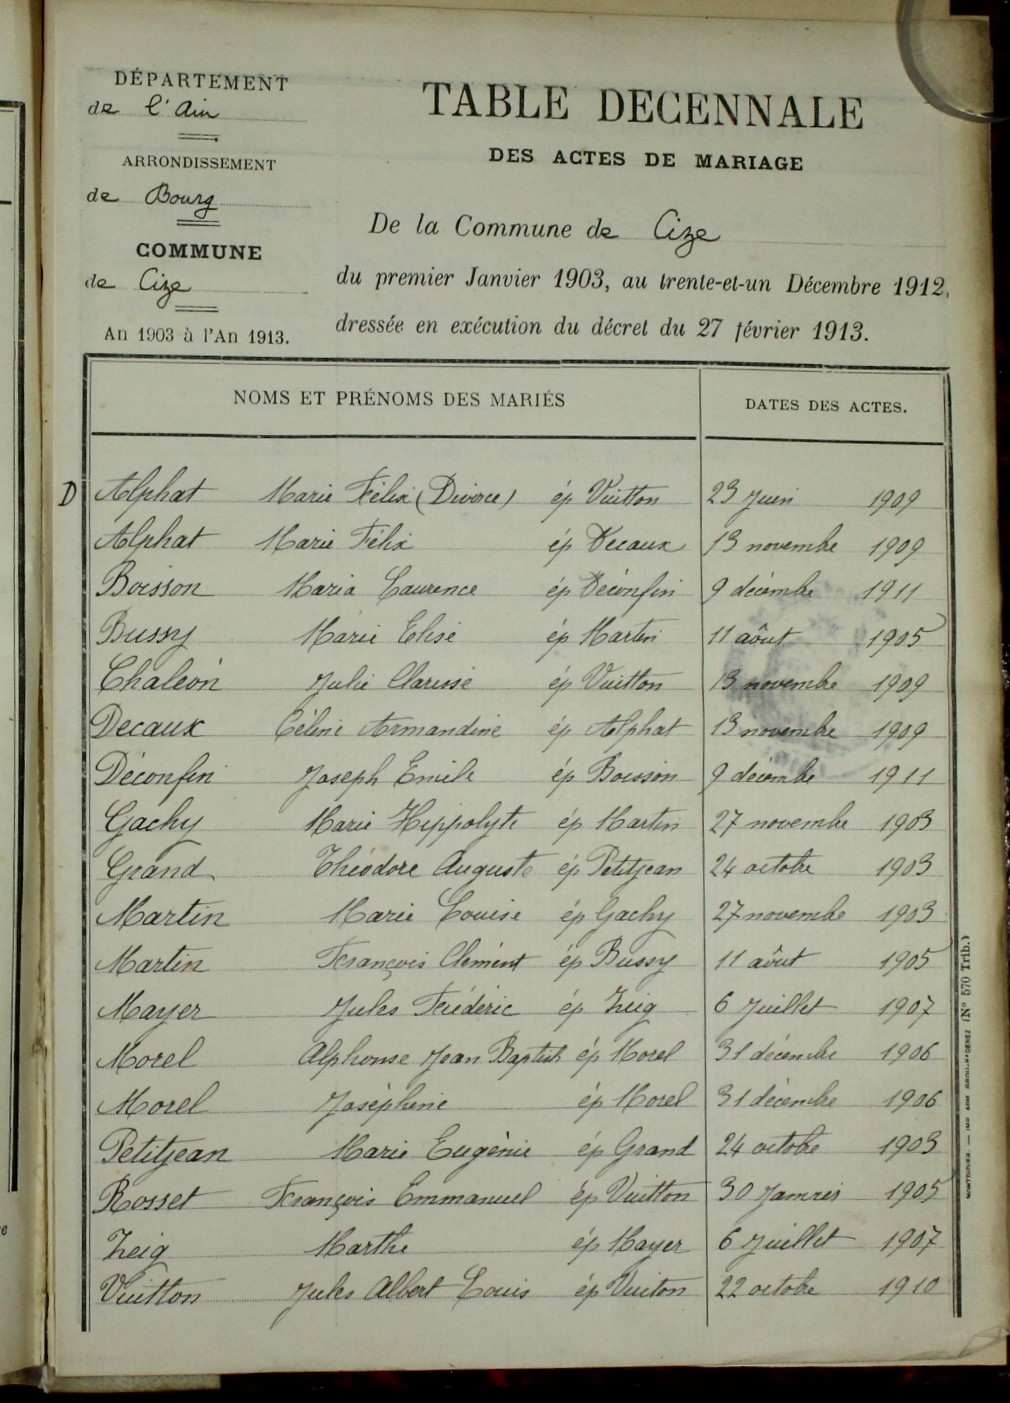 DÉPARTEMENT
de l'Ain
ARRONDISSEMENT
de Bourg
COMMUNE
de Cize
An 1903 à l'An 1913.
TABLE DECENNALE
DES ACTES DE MARIAGE
De la Commune de Cize
du premier Janvier 1903, au trente-et-un Décembre 1912,
dressée en exécution du décret du 27 février 1913.
NOMS ET PRÉNOMS DES MARIÉS DATES DES ACTES.
D Alphat Marie Félix (Divorce) ép Vuitton 23 Juin 1909
Alphat Marie Félix ép Decaux 13 novembre 1909
Boisson Maria Laurence ép Déconfin 9 décembre 1911
Bussy Marie Elise ép Martin 11 aôut 1905
Chaléon Julie Clarisse ép Vuitton 13 novembre 1909
Decaux Céline Armandine ép Alphat 13 novembre 1909
Déconfin Joseph Emile ép Boisson 9 décembre 1911
Gachy Marie Hippolyte ép Martin 27 novembre 1903
Grand Théodore Auguste ép Petitjean 24 octobre 1903
Martin Marie Louise ép Gachy 27 novembre 1903
Martin François Clément ép Bussy 11 aôut 1905
Mayer Jules Frédéric ép Zeig 6 Juillet 1907
Morel Alphonse Jean Baptiste ép Morel 31 décembre 1906
Morel Joséphine ép Morel 31 décembre 1906
Petitjean Marie Eugénie ép Grand 24 octobre 1903
Rosset François Emmanuel ép Vuitton 30 Janvier 1905
Zeig Marthe ép Mayer 6 Juillet 1907
Vuitton Jules Albert Louis ép Vuiton 22 octobre 1910
(N° 570 Trib.)